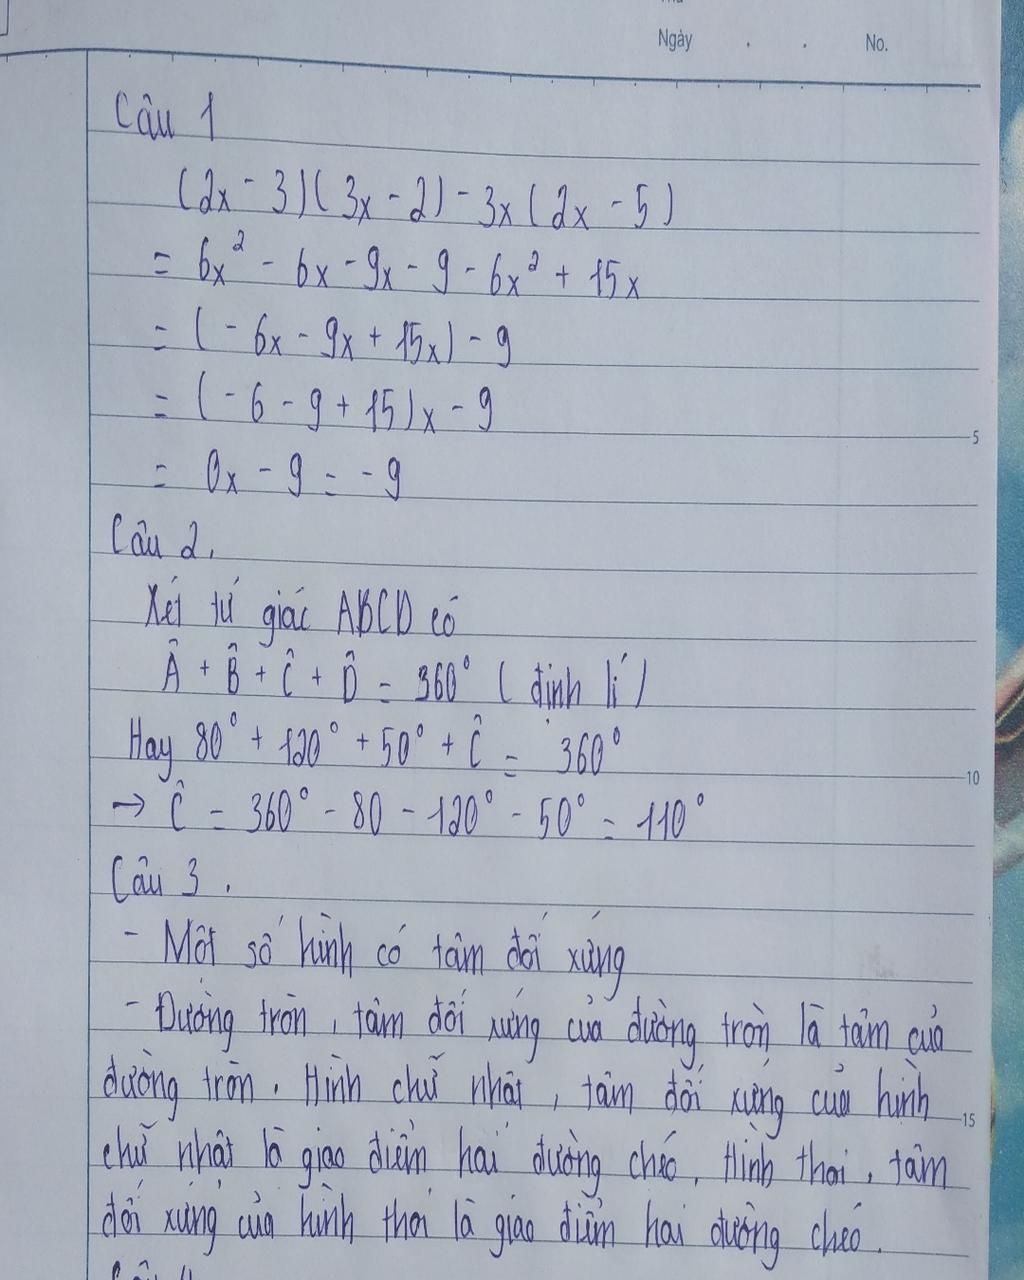 Ngày . . No.
Câu 1
(2x - 3)(3x - 2) - 3x(2x - 5)
= 6x² - 6x - 9x - 9 - 6x² + 15x
= (- 6x - 9x + 15x) - 9
= (- 6 - 9 + 15)x - 9
5
= 0x - 9 = - 9
Câu 2.
Xét tứ giác ABCD có
Â + B̂ + Ĉ + D̂ = 360° (định lí)
Hay 80° + 120° + 50° + Ĉ = 360°
10
→ Ĉ = 360° - 80 - 120° - 50° = 110°
Câu 3.
- Một số hình có tâm đối xứng
- Đường tròn, tâm đối xứng của đường tròn là tâm của
đường tròn. Hình chữ nhật, tâm đối xứng của hình
15
chữ nhật là giao điểm hai đường chéo. Hình thoi, tâm
đối xứng của hình thoi là giao điểm hai đường chéo.